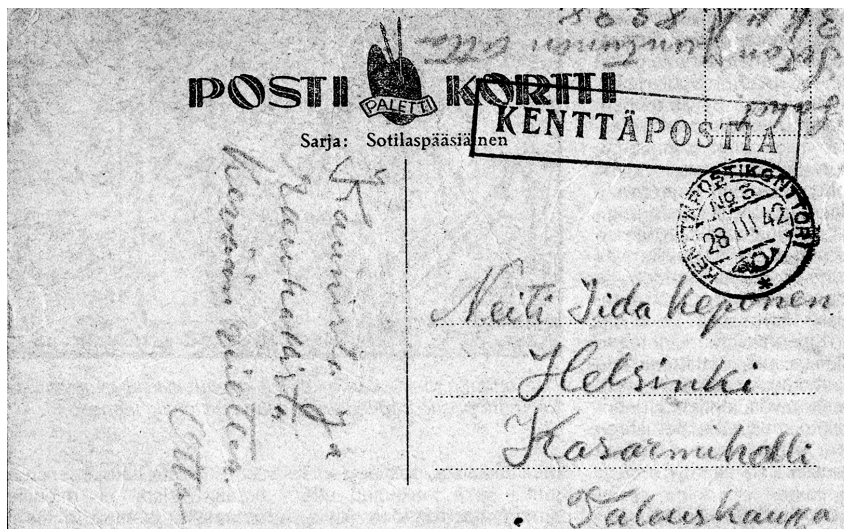 POSTI KORTTI
PALETTI
KENTTÄPOSTIA
Sarja: Sotilaspääsiäinen
KENTTÄPOSTIKONTTORI
No 3
28 III 42
Kaunista ja
rauhallista
kevään
Otto
Neiti Iida Keponen
Helsinki
Kasarmihalli
Talouskauppa